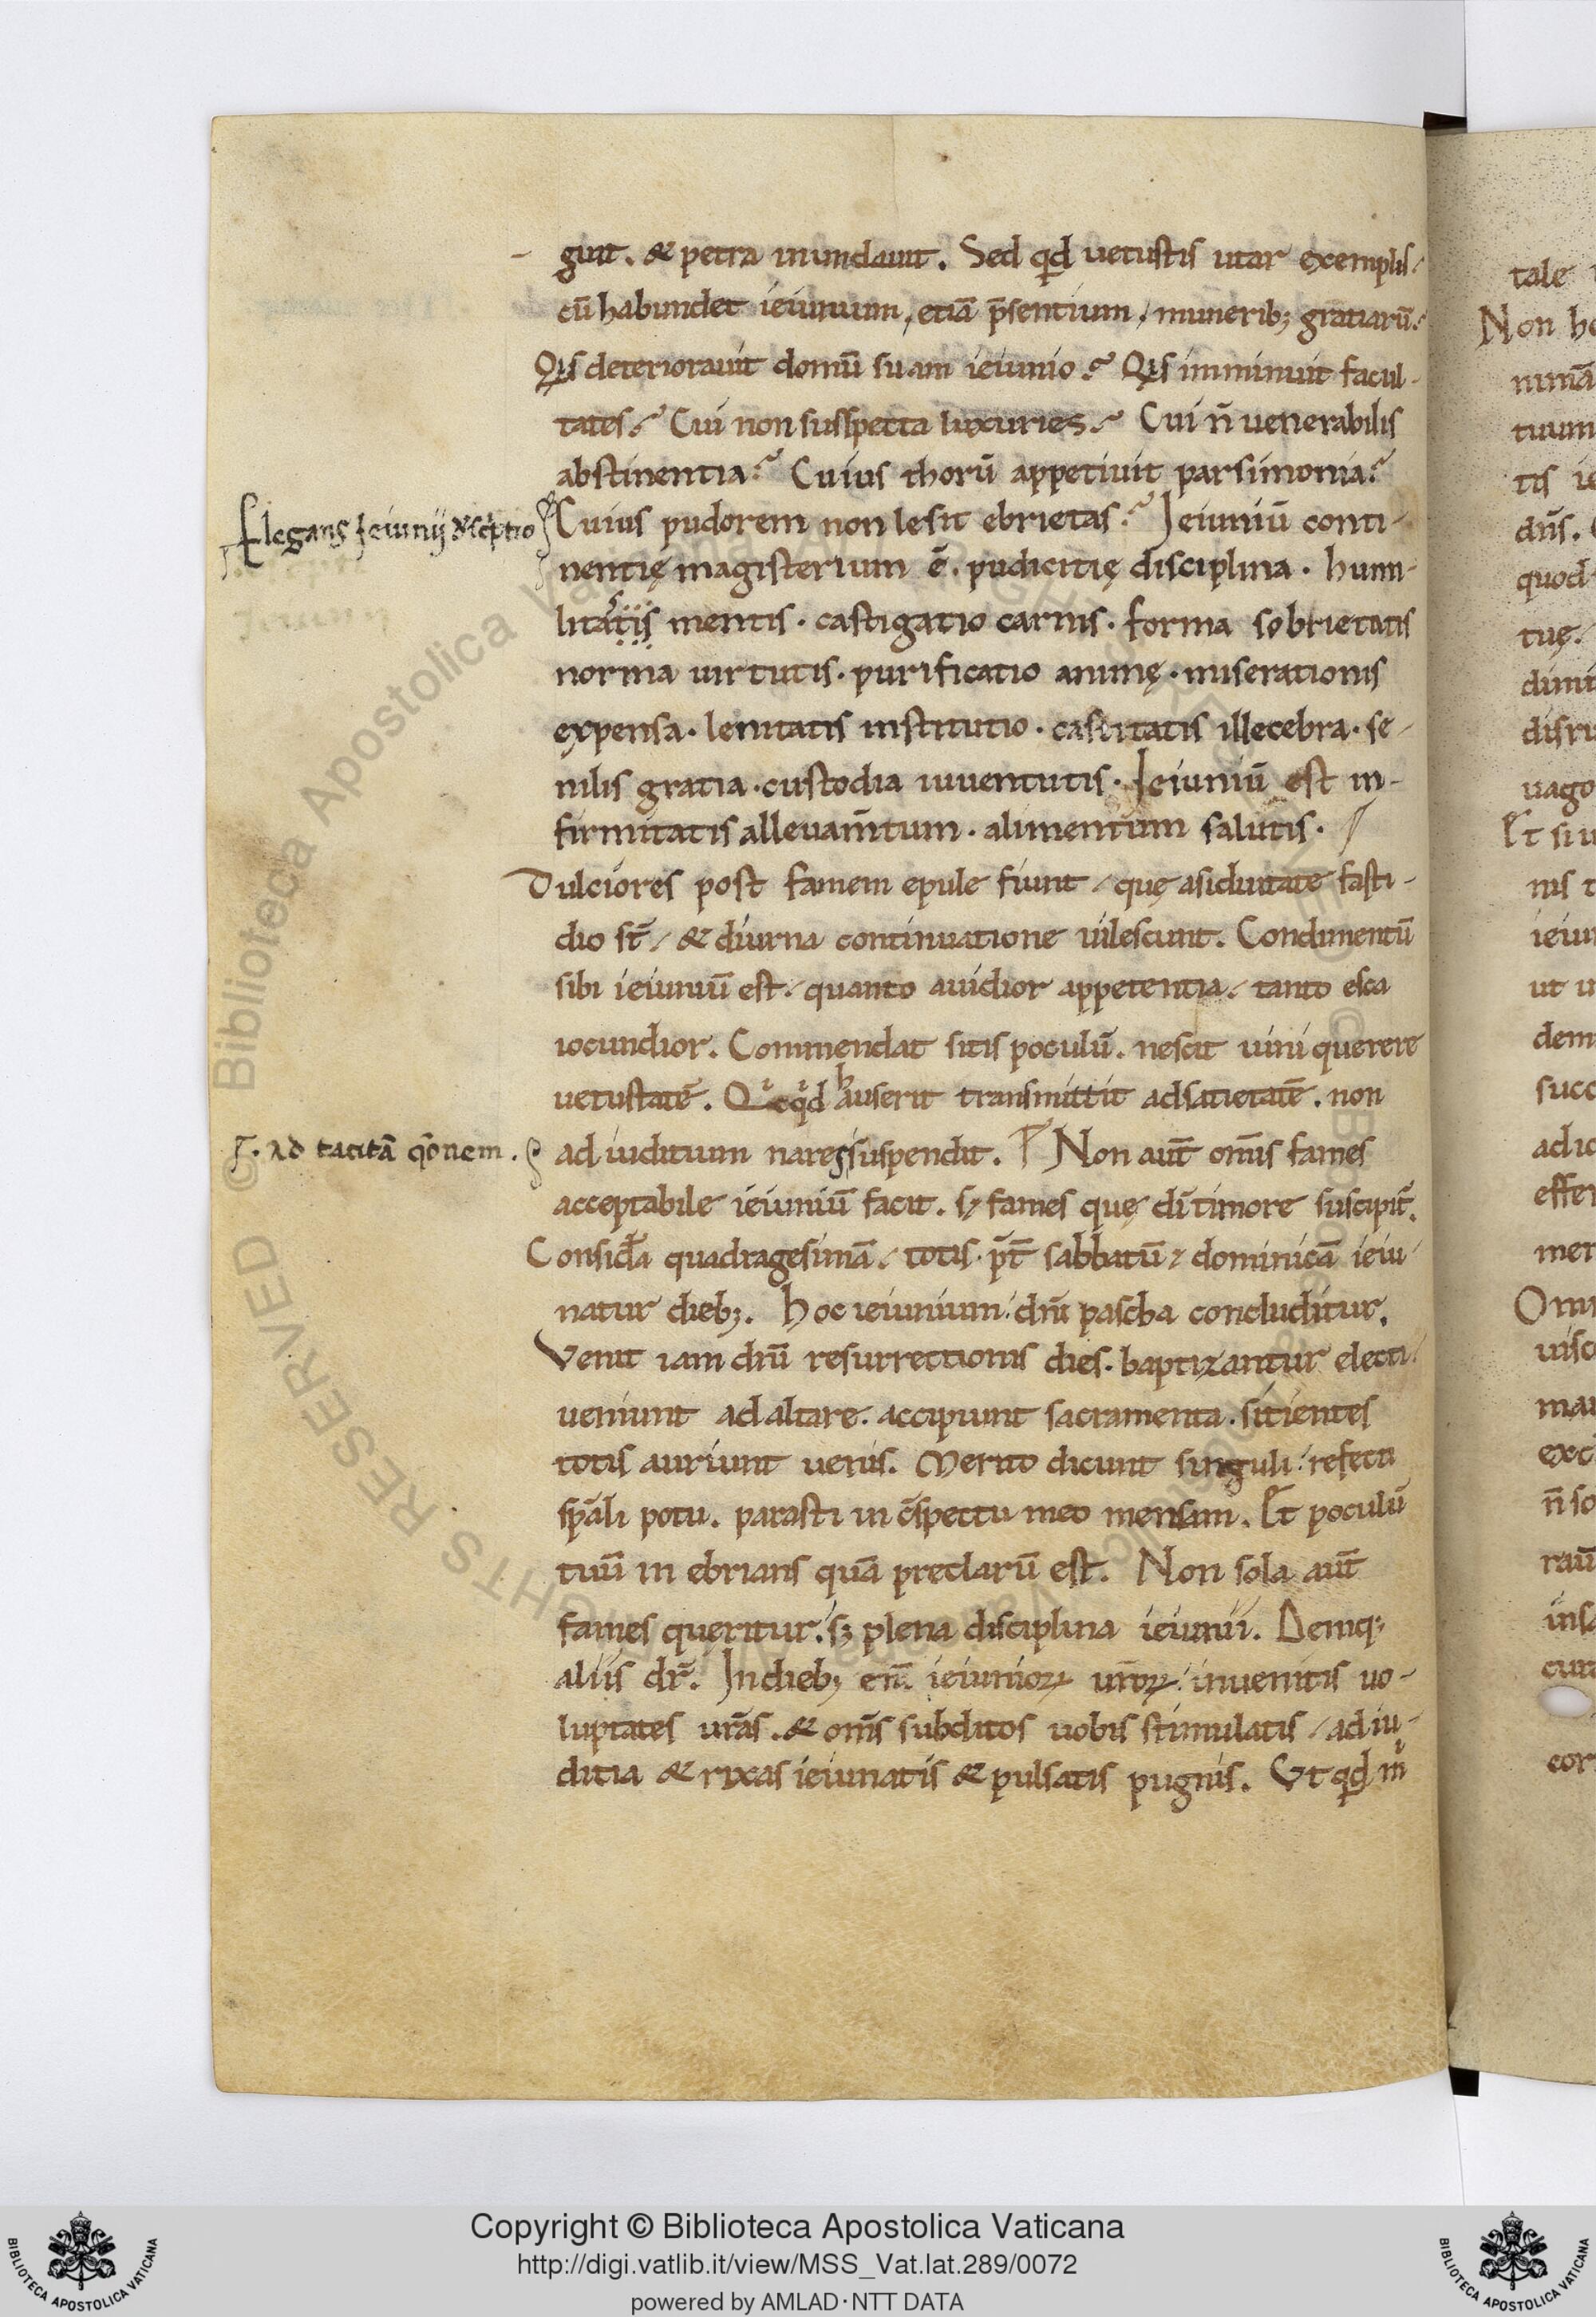 guit. & petra inundauit. Sed qd uetustis utar exemplis
cū habundet ieiunium, etiā p̄sentium, munerib; gratiarū.
Qis deteriorauit domū suam ieiunio? Qis imminuit facul-
tates? Cui non susspecta luxuries? Cui n̄ uenerabilis
abstinentia? Cuius thorū appetiuit parsimonia?
Elegans Ieiunij descriptio
Cuius pudorem non lesit ebrietas? Ieiuniū conti-
nentię magisterium ē. pudicitię disciplina. humi-
litatis mentis. castigatio carnis. forma sobrietatis
norma uirtutis. purificatio animę. miserationis
expensa. lenitatis institutio. castitatis illecebra. se-
nilis gratia. custodia iuuentutis. Ieiuniū est in-
firmitatis alleuam̄tum. alimentum salutis.
Dulciores post famem epule fiunt, quę asiduitate fasti-
dio st̄, & diurna continuatione uilescunt. Condimentū
sibi ieiuniū est, quanto auidior appetentia, tanto esca
iocundior. Commendat sitis poculū. nescit uini querere
uetustatē. Qicqid hauserit transmittit ad satietatē. non
⁊. ad tacitā qōnem.
ad iuditium nares suspendit. Non aut̄ om̄is fames
acceptabile ieiuniū facit. sꝫ fames quę dī timore suscipit̄.
Consid̄a quadragesimā, totis p̄t̄ sabbatū ⁊ dominicā ieiu-
natur dieb;. hoc ieiunium dn̄i pascha concluditur.
Venit iam diū resurrectionis dies. baptizantur electi
ueniunt ad altare. accipiunt sacramenta. sitientes
totis auriunt uenis. Merito dicunt singuli refecti
sp̄āli potu. parasti in c̄spectu meo mensam. Et poculū
tuū in ebrians quā preclarū est. Non sola aut̄
fames queritur. sꝫ plena disciplina ieiunii. Deniq;
aliis dr̄. In dieb; eni̅ ieiunioꝝ ur̄oꝝ inuenitis uo-
luptates ur̄as. & om̄s subditos uobis stimulatis, ad iu-
ditia & rixas ieiunatis & pulsatis pugnis. Vt qd m̄
tale
Non
tuum
tis
dn̄s.
quod
tuę.
disru
uago
Et si u
nis
ieiu
ut
dem
succ
ad
effe
mer
Om
uisc
exc
n̄ so
raū
insa
cura
cor
Biblioteca Apostolica Vaticana
ALL RIGHTS RESERVED ©
Copyright © Biblioteca Apostolica Vaticana
http://digi.vatlib.it/view/MSS_Vat.lat.289/0072
powered by AMLAD·NTT DATA
BIBLIOTECA APOSTOLICA VATICANA
BIBLIOTECA APOSTOLICA VATICANA